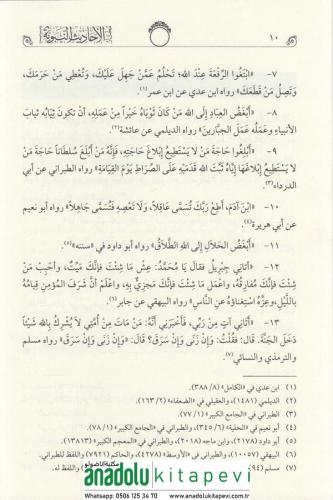 ١٠
الأحاديث النبوية
٧- «ابْتَغُوا الرِّفْعَةَ عِنْدَ اللَّهِ؛ تَحْلُمُ عَمَّنْ جَهِلَ عَلَيْكَ، وَتُعْطِي مَنْ حَرَمَكَ،
وَتَصِلُ مَنْ قَطَعَكَ» رواه ابن عدي عن ابن عمر(١).
٨- «أَبْغَضُ العِبَادِ إِلَى اللَّهِ مَنْ كَانَ ثَوْبَاهُ خَيْراً مِنْ عَمَلِهِ، أَنْ تَكُونَ ثِيَابُهُ ثِيَابَ
الأَنْبِيَاءِ وَعَمَلُهُ عَمَلَ الجَبَّارِينَ» رواه الديلمي عن عائشة(٢).
٩- «أَبْلِغُوا حَاجَةَ مَنْ لَا يَسْتَطِيعُ إِبْلَاغَ حَاجَتِهِ، فَإِنَّهُ مَنْ أَبْلَغَ سُلْطَاناً حَاجَةَ مَنْ
لَا يَسْتَطِيعُ إِبْلَاغَهَا إِيَّاهُ ثَبَّتَ اللَّهُ قَدَمَيْهِ عَلَى الصِّرَاطِ يَوْمَ القِيَامَةِ» رواه الطبراني عن أبي
الدرداء(٣).
١٠- «ابْنَ آدَمَ، أَطِعْ رَبَّكَ تُسَمَّى عَاقِلاً، وَلَا تَعْصِهِ فَتُسَمَّى جَاهِلاً» رواه أبو نعيم
عن أبي هريرة(٤).
١١- «أَبْغَضُ الحَلَالِ إِلَى اللَّهِ الطَّلَاقُ» رواه أبو داود في «سننه»(٥).
١٢- «أَتَانِي جِبْرِيلُ فَقَالَ: يَا مُحَمَّدُ: عِشْ مَا شِئْتَ فَإِنَّكَ مَيِّتٌ، وَأَحْبِبْ مَنْ
شِئْتَ فَإِنَّكَ مُفَارِقُهُ، وَاعْمَلْ مَا شِئْتَ فَإِنَّكَ مَجْزِيٌّ بِهِ، وَاعْلَمْ أَنَّ شَرَفَ المُؤْمِنِ قِيَامُهُ
بِاللَّيْلِ، وَعِزُّهُ اسْتِغْنَاؤُهُ عَنِ النَّاسِ» رواه البيهقي عن جابر(٦).
١٣- «أَتَانِي آتٍ مِنْ رَبِّي، فَأَخْبَرَنِي أَنَّهُ: مَنْ مَاتَ مِنْ أُمَّتِي لَا يُشْرِكُ بِاللَّهِ شَيْئاً
دَخَلَ الجَنَّةَ. قَالَ: فَقُلْتُ: وَإِنْ زَنَى وَإِنْ سَرَقَ؟ قَالَ: «وَإِنْ زَنَى وَإِنْ سَرَقَ» رواه مسلم
والترمذي والنسائي(٧).
(١) ابن عدي في «الكامل» (٨/ ٣٨٨).
(٢) الديلمي (١٤٨١)، والعقيلي في «الضعفاء» (٢/ ١٦٣).
(٣) الطبراني في «الجامع الكبير» (١/ ٧٧).
(٤) أبو نعيم في «الحلية» (٦/ ٣٤٥)، والطبراني في «الجامع الكبير» (١/ ٧٨).
(٥) أبو داود (٢١٧٨)، وابن ماجه (٢٠١٨)، والطبراني في «المعجم الكبير» (١٣٨١٣).
(٦) البيهقي (١٠٠٥٧)، والطبراني في «الأوسط» (٤٢٧٨)، والحاكم (٧٩٢١) واللفظ للطبراني.
(٧) مسلم (٩٤)، واللفظ له.
مكتبة اناضولو
anadolu kitapevi
Whatsapp: 0506 125 34 70 - www.anadolukitapevi.com